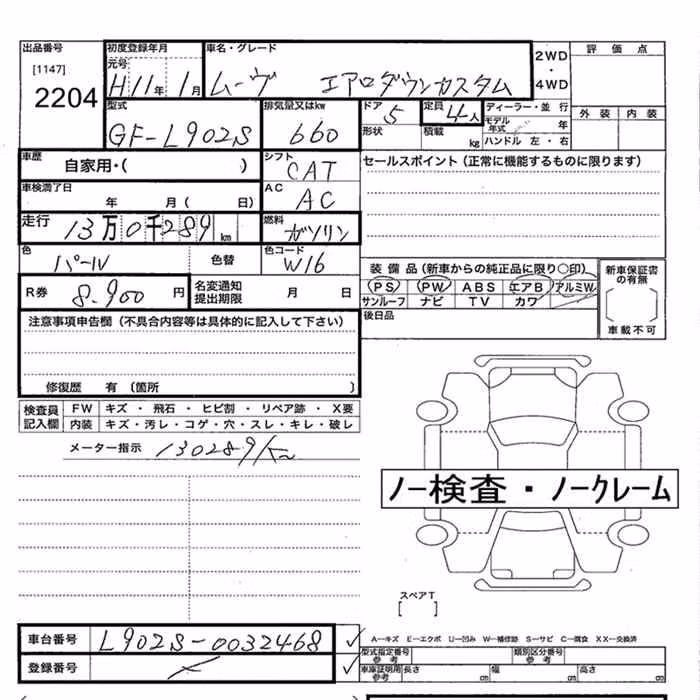 出品番号 初度登録年月 車名・グレード 2WD・4WD 評価点
[1147] 元号
2204 H11年 1月 ムーヴ エアロダウンカスタム
型式 排気量又はkw ドア 定員 ディーラー・並行 外装 内装
GF-L902S 660 5 4人 モデル年式 年
形状 積載 kg ハンドル 左・右
車歴 自家用・( ) シフト CAT セールスポイント (正常に機能するものに限ります)
車検満了日 年 月( 日) AC AC
走行 13万0千289km 燃料 ガソリン
色 パール 色替 色コード W16 装備品 (新車からの純正品に限り○印) 新車保証書の有無
R券 8.900円 名変通知提出期限 月 日 PS PW ABS エアB アルミW
サンルーフ ナビ TV カワ
[ ]
車載不可
注意事項申告欄 (不具合内容等は具体的に記入して下さい) 後日品
修復歴 有 (箇所 )
検査員記入欄 FW キズ・飛石・ヒビ割・リペア跡・X要
内装 キズ・汚レ・コゲ・穴・スレ・キレ・破レ
メーター指示 130289km
ノー検査・ノークレーム
スペアT
[ ]
車台番号 L902S-0032468 ✓ A—キズ E—エクボ U—凹み W—補修跡 S—サビ C—腐食 XX—交換済
型式指定番号 参考 類別区分番号 参考
登録番号 ✓ 車庫証明用 参考 長さ cm 幅 cm 高さ cm